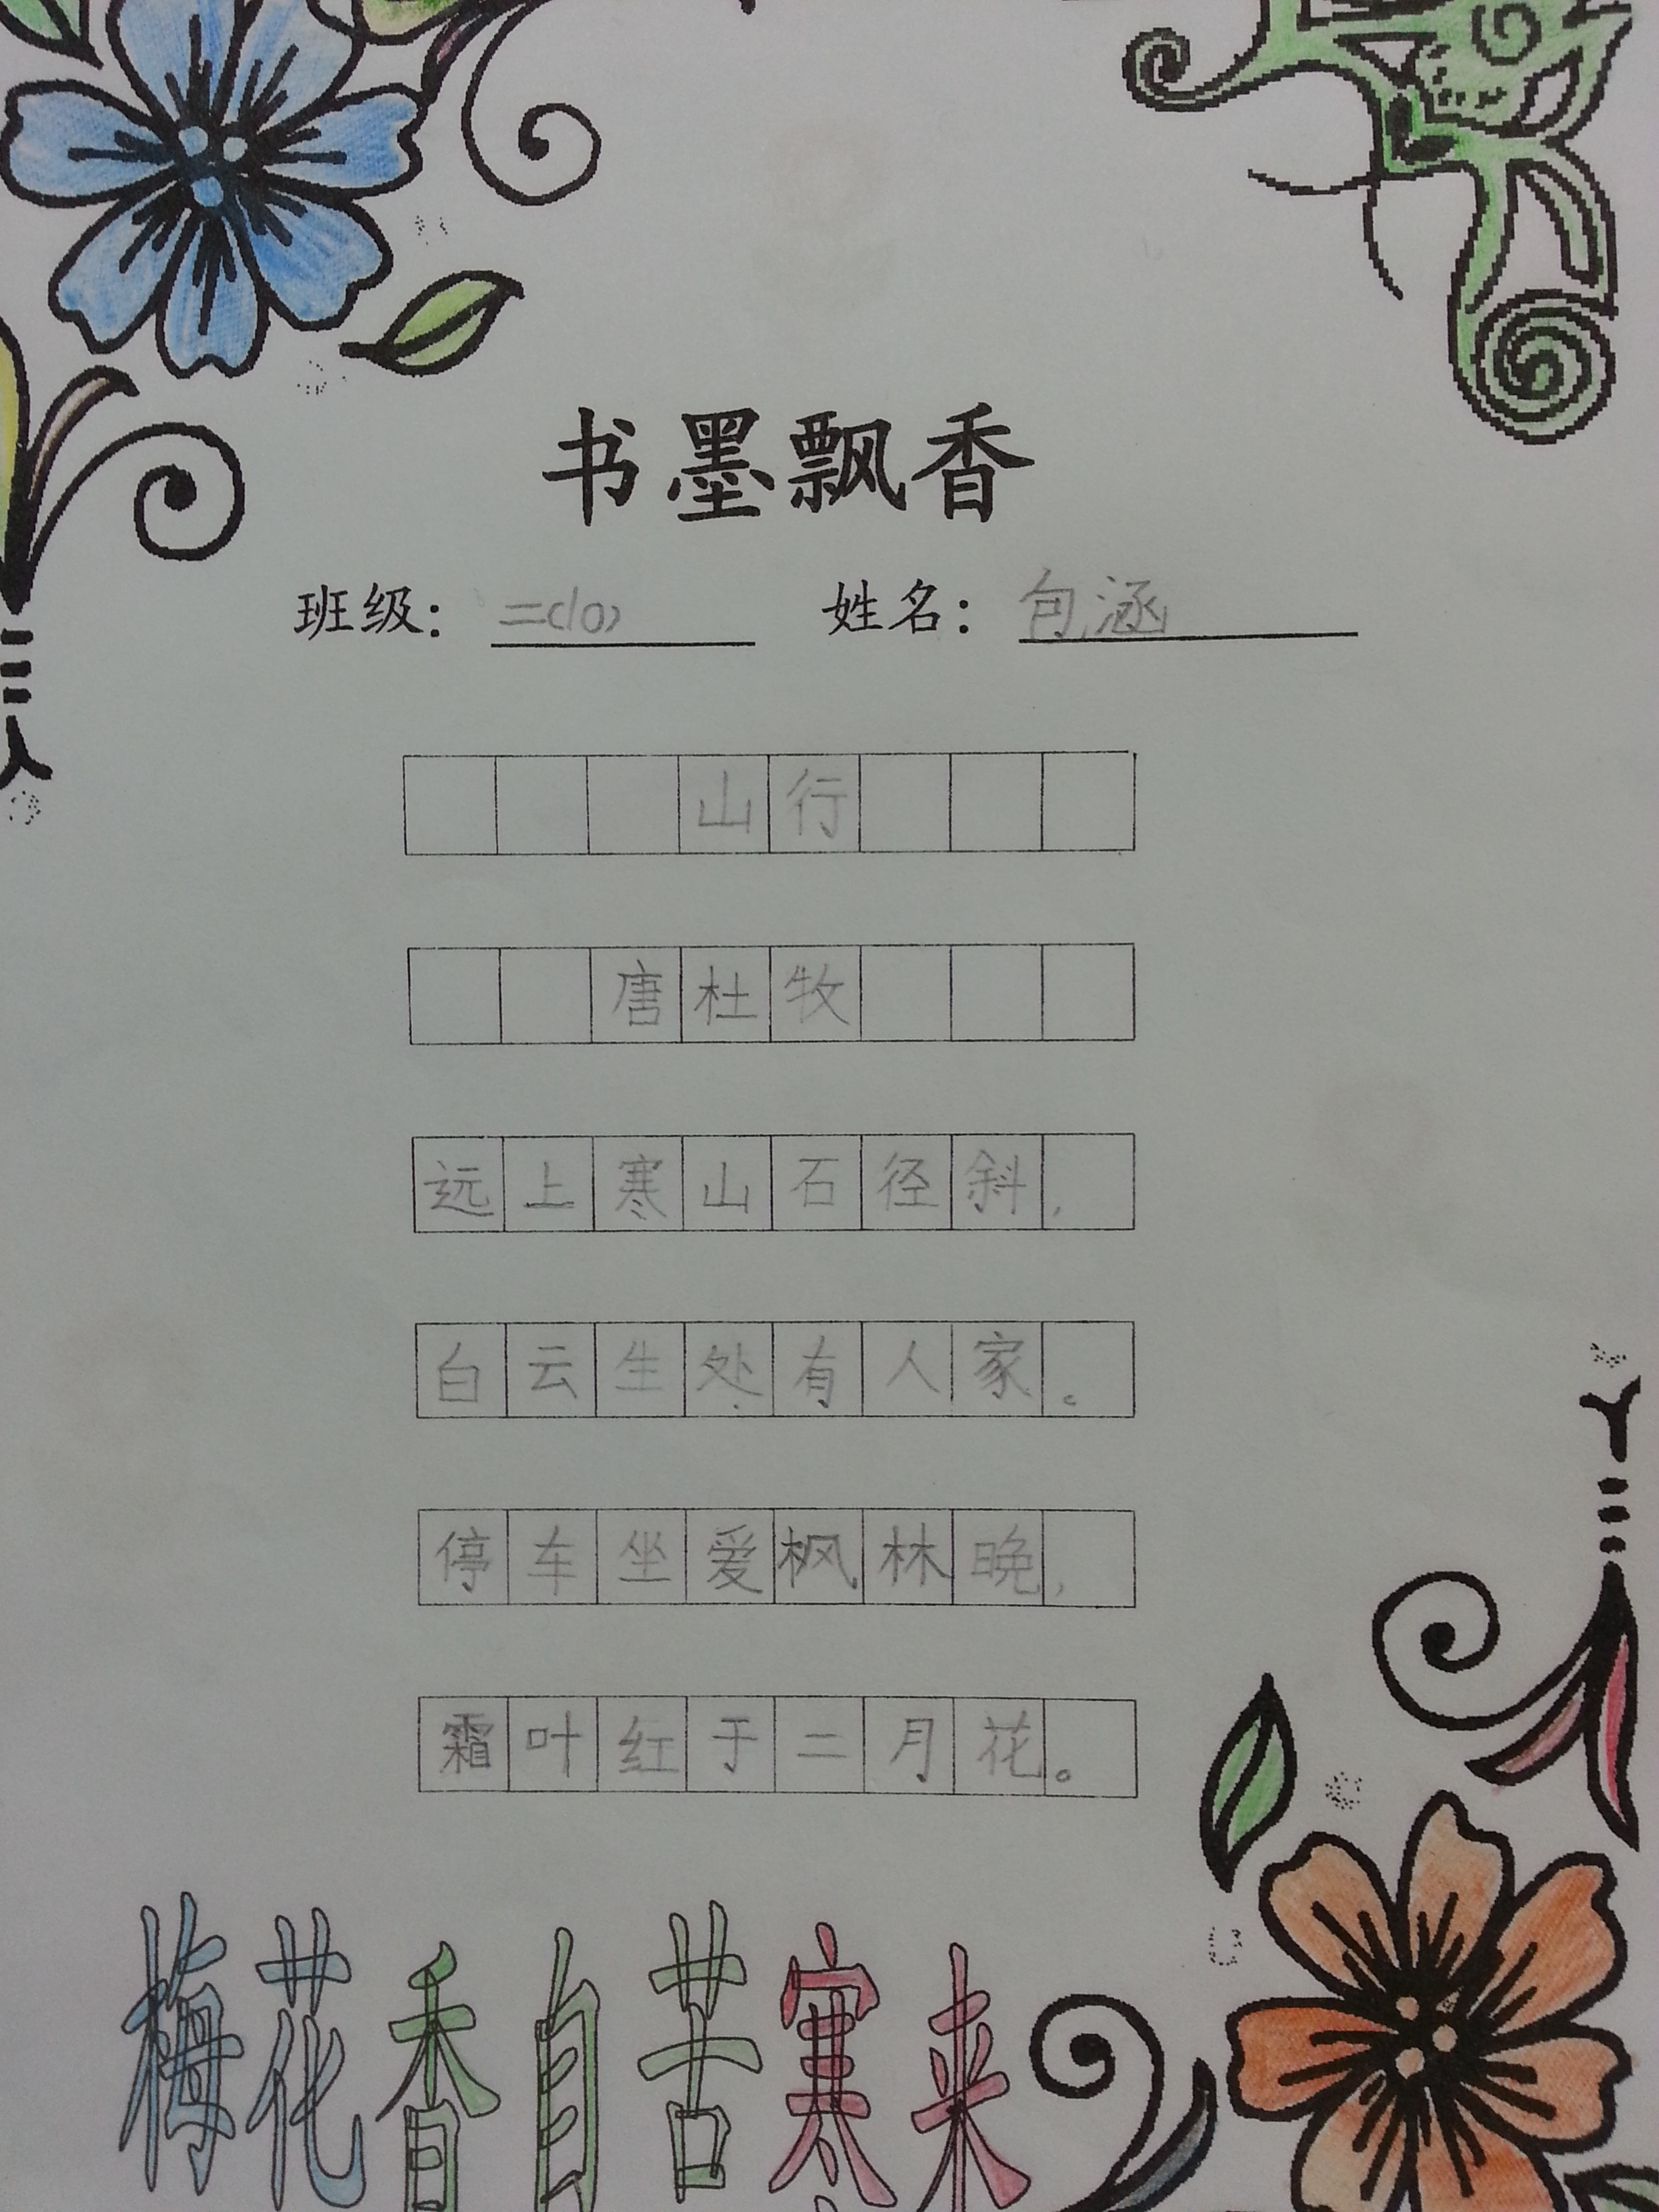 书墨飘香
班级：二(10) 姓名：包涵
山行
唐杜牧
远上寒山石径斜，
白云生处有人家。
停车坐爱枫林晚，
霜叶红于二月花。
梅花香自苦寒来